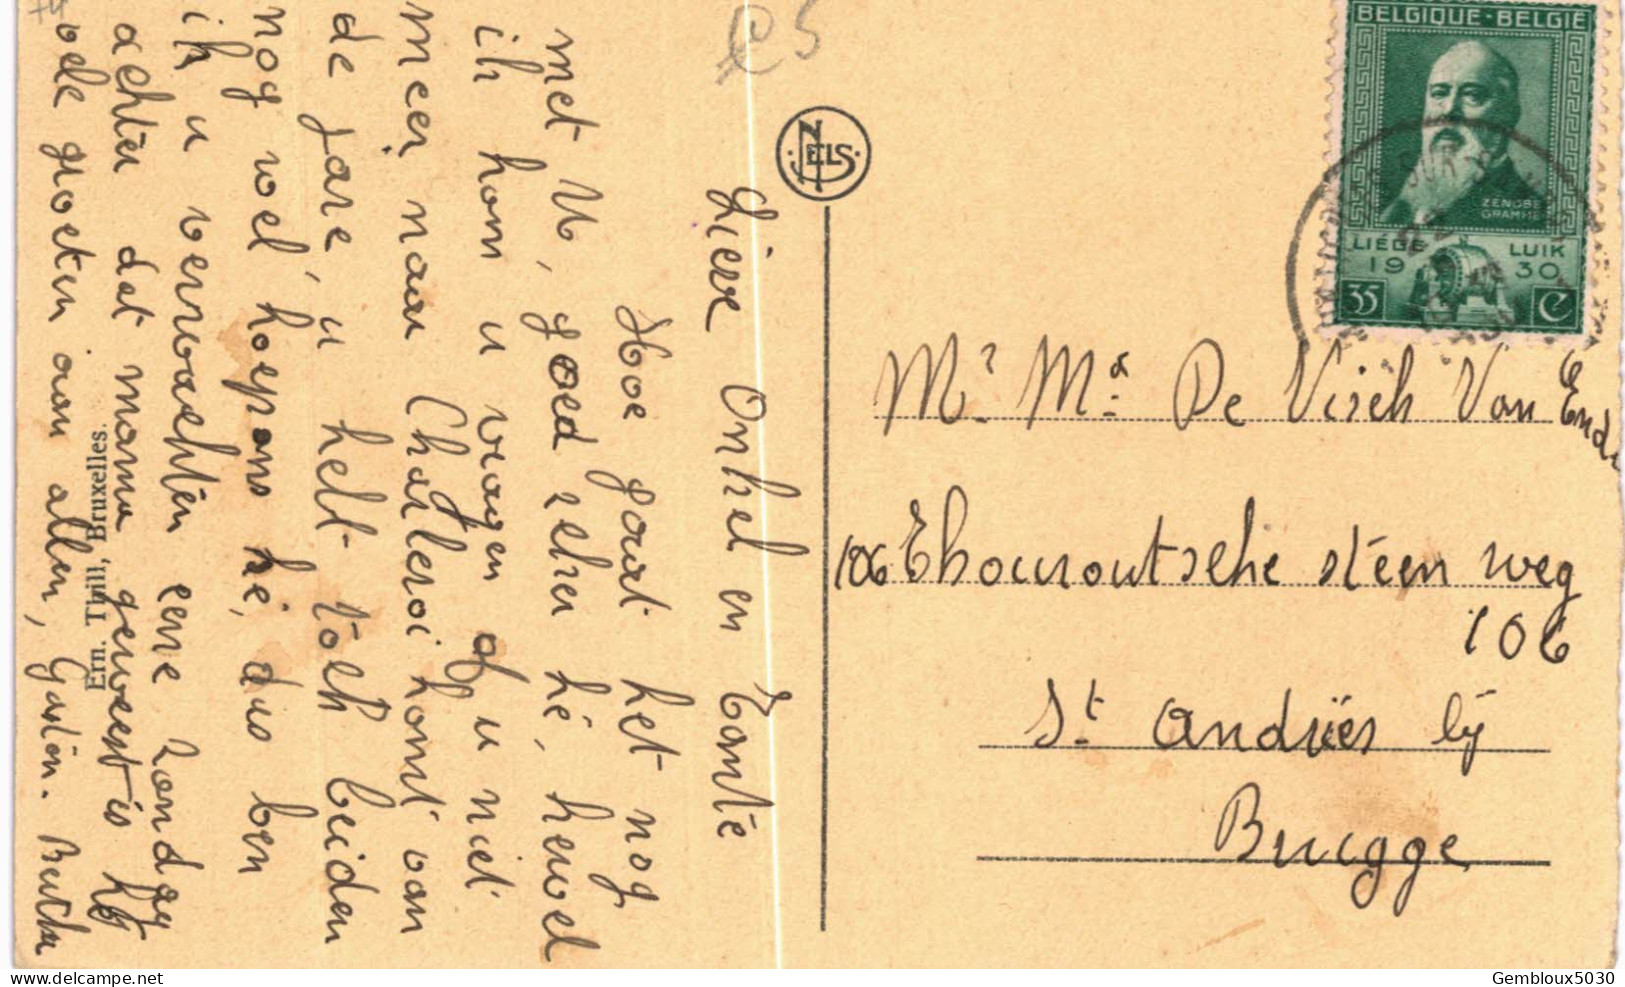 Lieve Onkel en Tante
Hoe gaat het nog
met U, goed zeker hé, hewel
ik kom u vragen of u niet
meer naar Charleroi komt van
de jare, u helt toch beiden
nog wel, hoepens hé, dus ben
ik u verwachten eene zondag
achter dat mama geweest is
vele groeten van allen, Gaston. Bertha
Ern. Thill, Bruxelles.
NELS
BELGIQUE-BELGIË
ZENOBE
GRAMME
LIÉGE LUIK
19 30
35 C
Mr Ma De Visch Van Ende
106 Thouroutsche steen weg
106
St Andriës bÿ
Brugge
delcampe.net
Gembloux5030